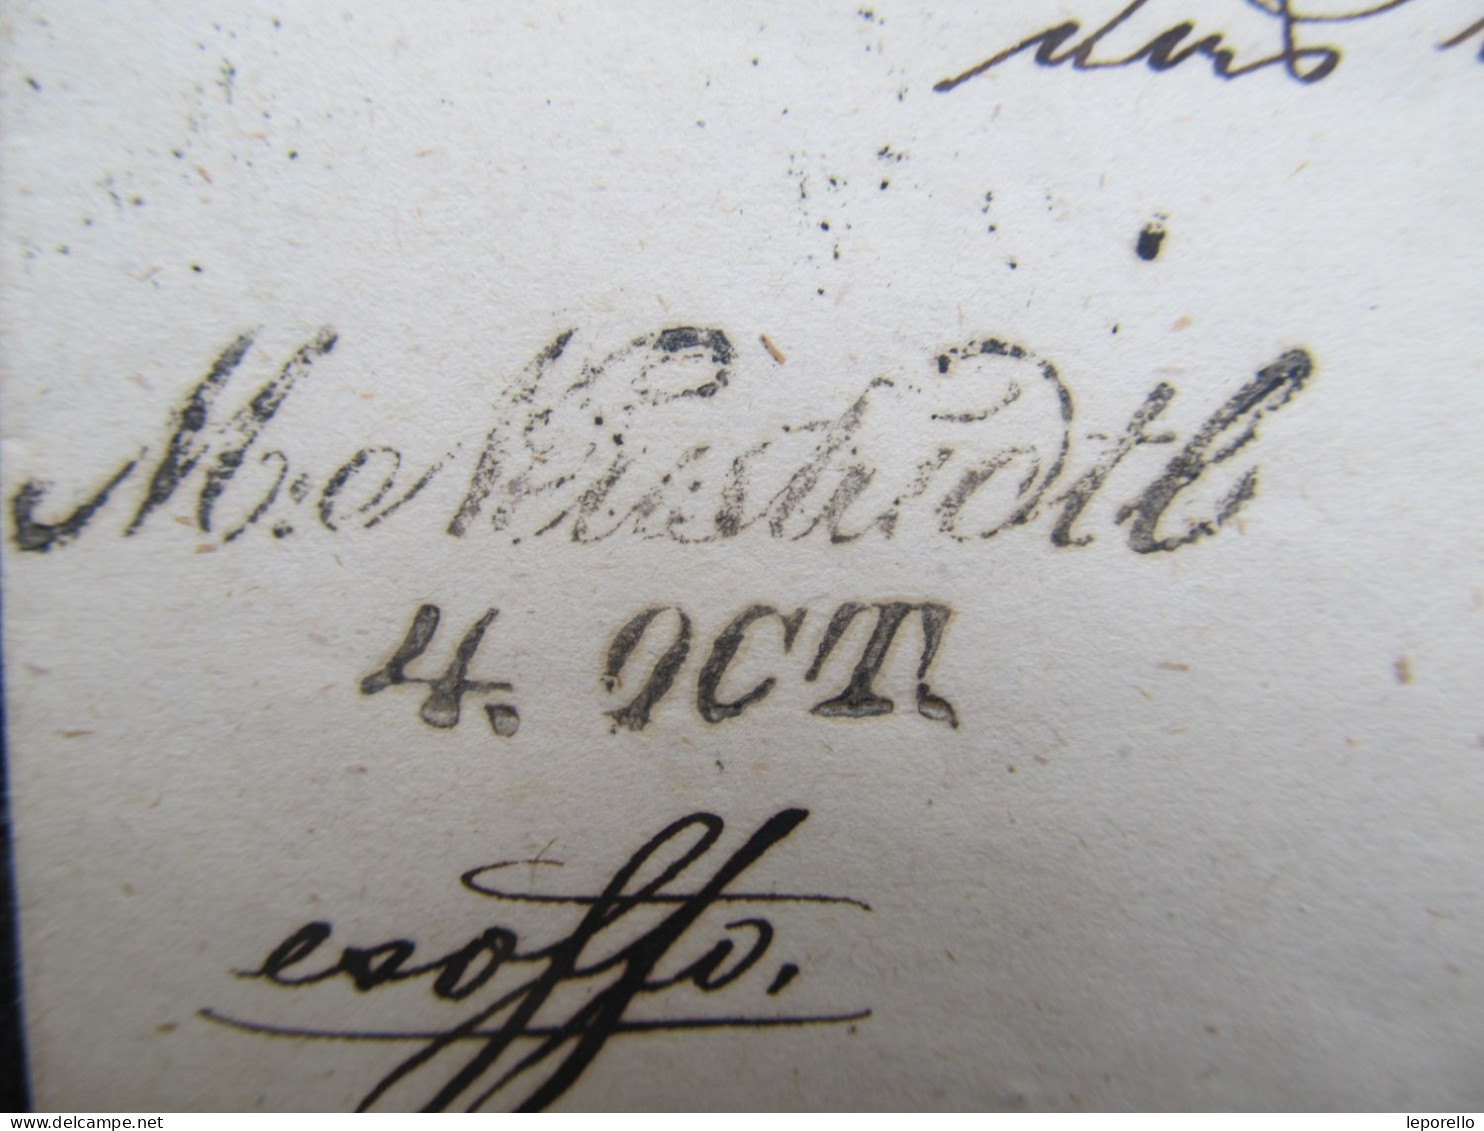 M: Neustadtl
4. OCT.
exoffo.
delcampe.net
leporello